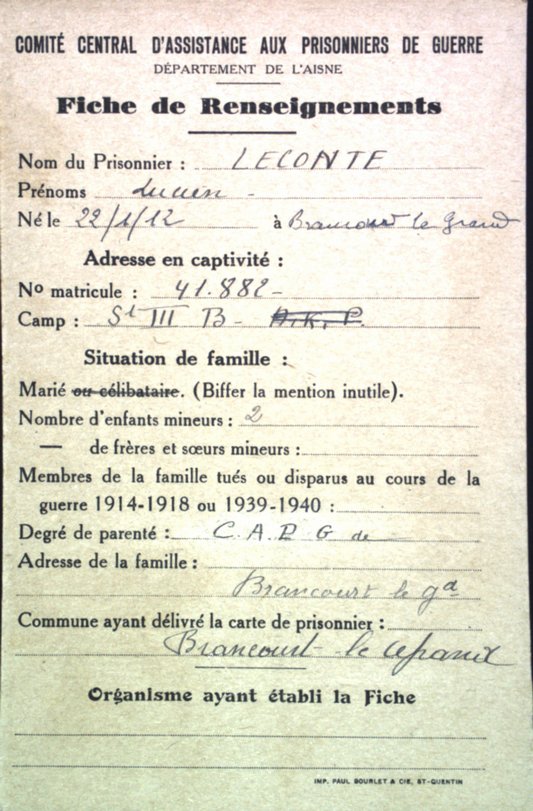 COMITÉ CENTRAL D'ASSISTANCE AUX PRISONNIERS DE GUERRE
DÉPARTEMENT DE L'AISNE
Fiche de Renseignements
Nom du Prisonnier : LECONTE
Prénoms Lucien -
Né le 22/1/12 à Brancourt le Grand
Adresse en captivité :
No matricule : 41.882-
Camp : St III B-
Situation de famille :
Marié ou célibataire. (Biffer la mention inutile).
Nombre d'enfants mineurs : 2
— de frères et sœurs mineurs :
Membres de la famille tués ou disparus au cours de la
guerre 1914-1918 ou 1939-1940 :
Degré de parenté : C.A.P.G de
Adresse de la famille :
Brancourt le gd
Commune ayant délivré la carte de prisonnier :
Brancourt-le Grand
Organisme ayant établi la Fiche
IMP. PAUL BOURLET & CIE, ST-QUENTIN